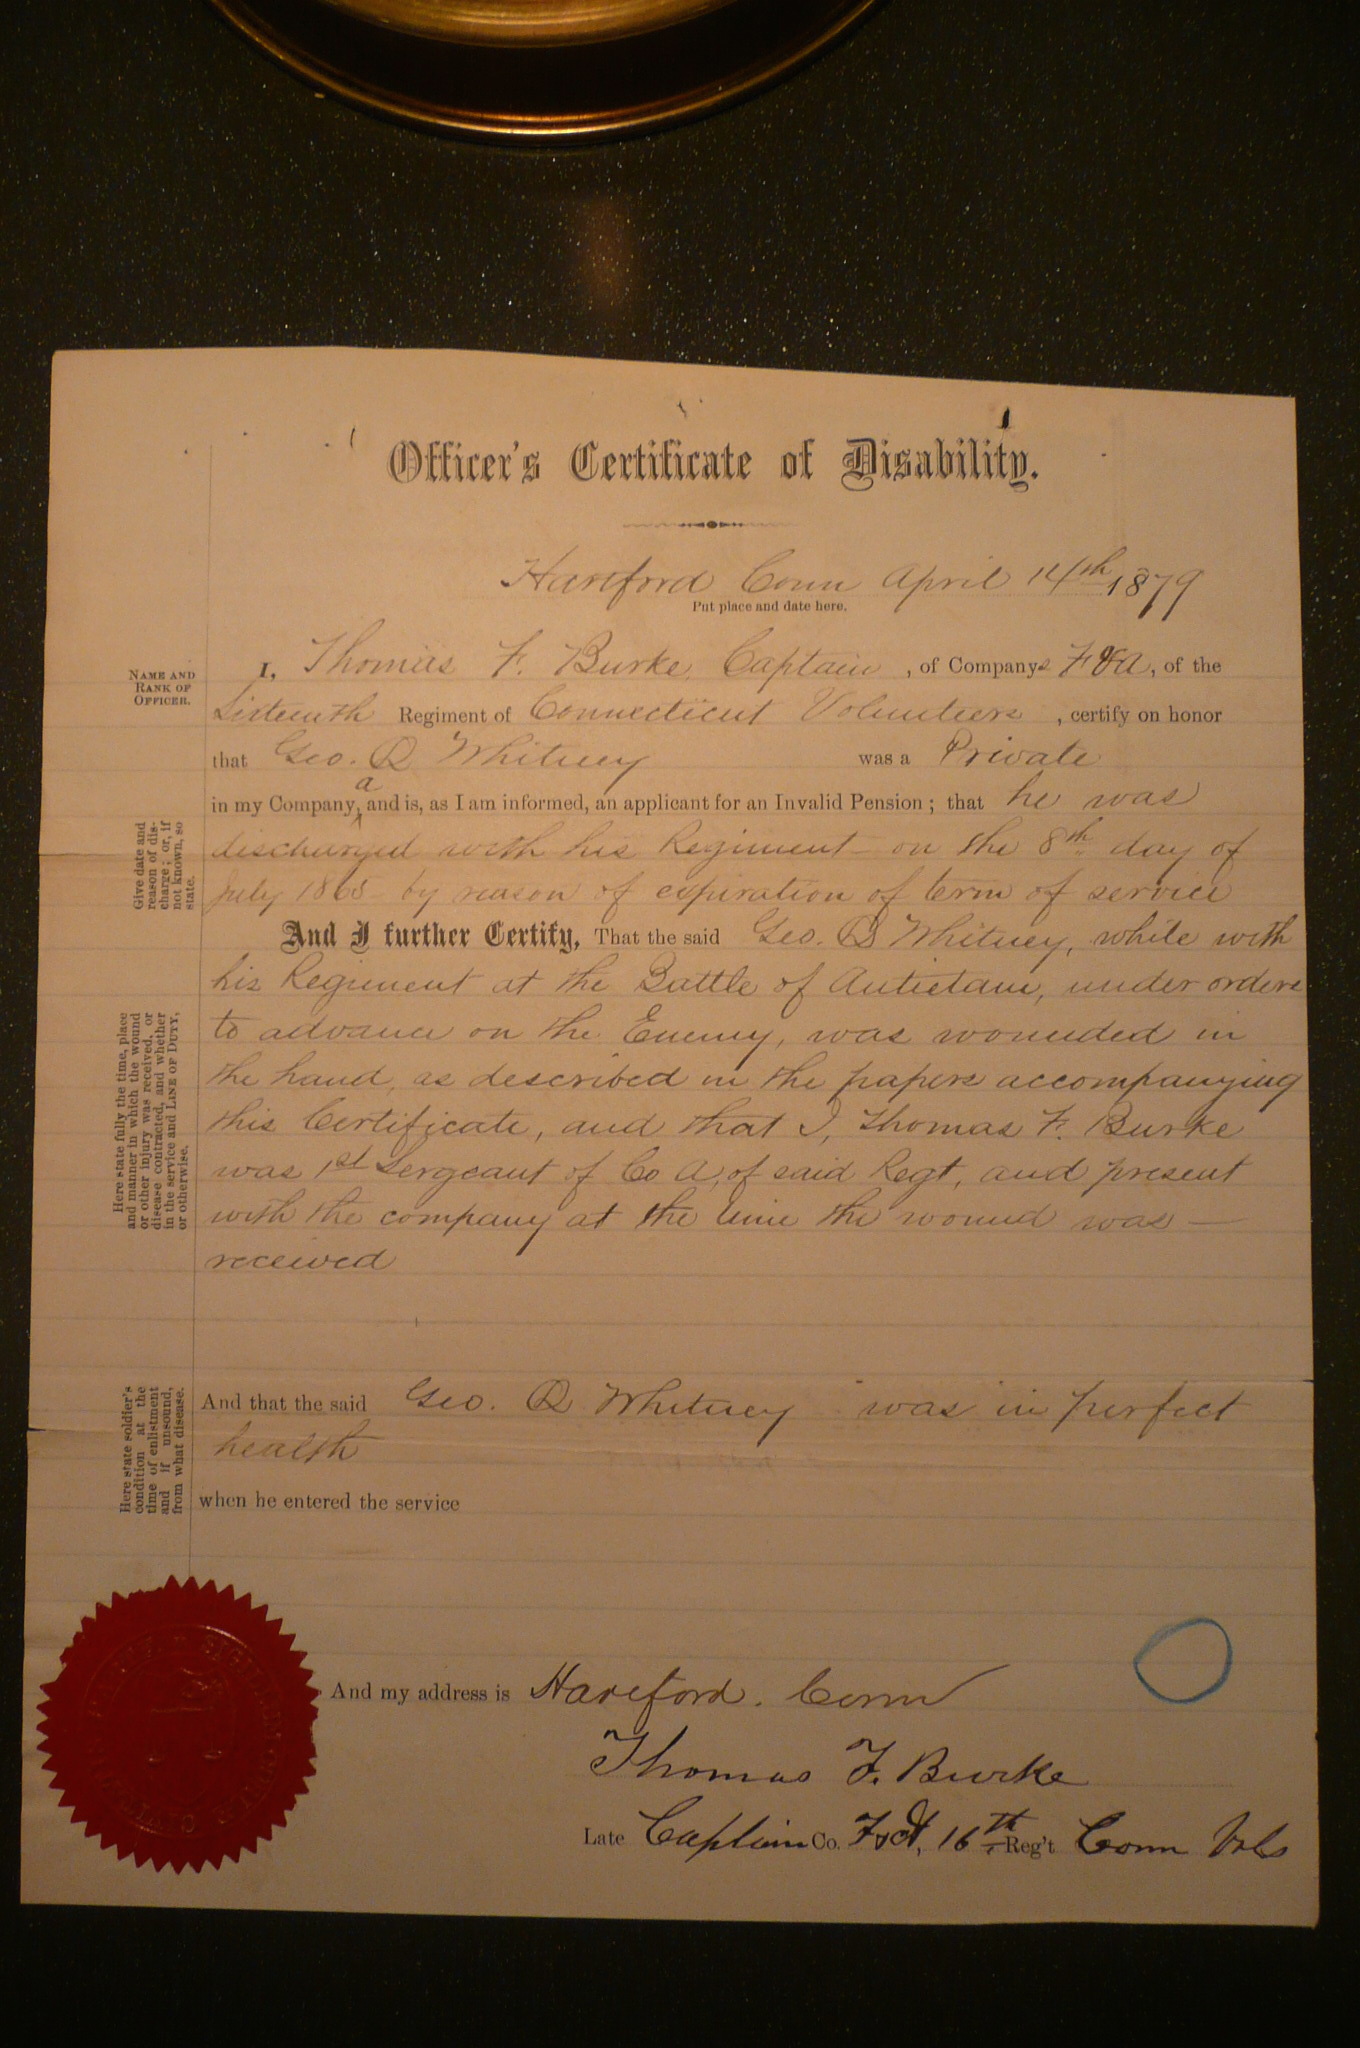 Officer's Certificate of Disability.
Hartford Conn April 14th 1879
Put place and date here.
NAME AND
RANK OF
OFFICER.
I, Thomas F. Burke, Captain, of Companys F & A, of the
Sixteenth Regiment of Connecticut Volunteers, certify on honor
that Geo. Q Whitney was a Private
in my Company, a and is, as I am informed, an applicant for an Invalid Pension; that he was
Give date and
reason of dis-
charge; or, if
not known, so
state.
discharged with his Regiment on the 8th day of
July 1865 by reason of expiration of term of service
And I further Certify, That the said Geo. Q Whitney, while with
his Regiment at the Battle of Antietam, under orders
Here state fully the time, place
and manner in which the wound
or other injury was received, or
disease contracted, and whether
in the service and LINE OF DUTY,
or otherwise.
to advance on the Enemy, was wounded in
the hand, as described in the papers accompanying
this Certificate, and that I, Thomas F. Burke
was 1st Sergeant of Co A, of said Regt, and present
with the company at the time the wound was —
received
Here state soldier's
condition at the
time of enlistment
and if unsound,
from what disease.
And that the said Geo. Q Whitney was in perfect
health
when he entered the service
And my address is Hartford. Conn
Thomas F. Burke
Late Captain Co. F & A, 16th Reg't Conn Vols